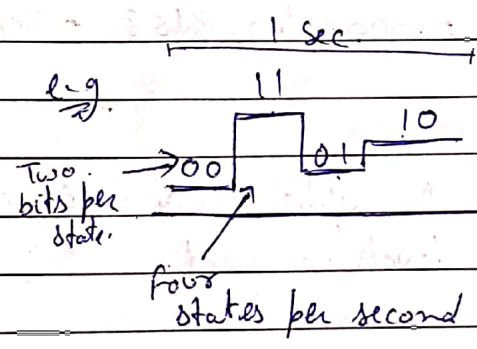 1 Sec.
e-g.
11
00
01
10
Two
bits per
state.
four
states per second